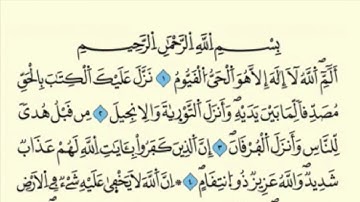 بِسْمِ اللَّهِ الرَّحْمَٰنِ الرَّحِيمِ
أَلَمِّٓ اللَّهُ لَآ إِلَٰهَ إِلَّا هُوَ الْحَىُّ الْقَيُّومُ ١ نَزَّلَ عَلَيْكَ الْكِتَٰبَ بِالْحَقِّ
مُصَدِّقاً لِّمَا بَيْنَ يَدَيْهِ وَأَنزَلَ التَّوْرَىٰةَ وَالْإِنجِيلَ ٢ مِن قَبْلُ هُدىً
لِّلنَّاسِ وَأَنزَلَ الْفُرْقَانَ ٣ إِنَّ الَّذِينَ كَفَرُواْ بِـَٔايَٰتِ اللَّهِ لَهُمْ عَذَابٌ
شَدِيدٌ وَاللَّهُ عَزِيزٌ ذُو انتِقَامٍ ٤ إِنَّ اللَّهَ لَا يَخْفَىٰ عَلَيْهِ شَىْءٌ فِى الْأَرْضِ